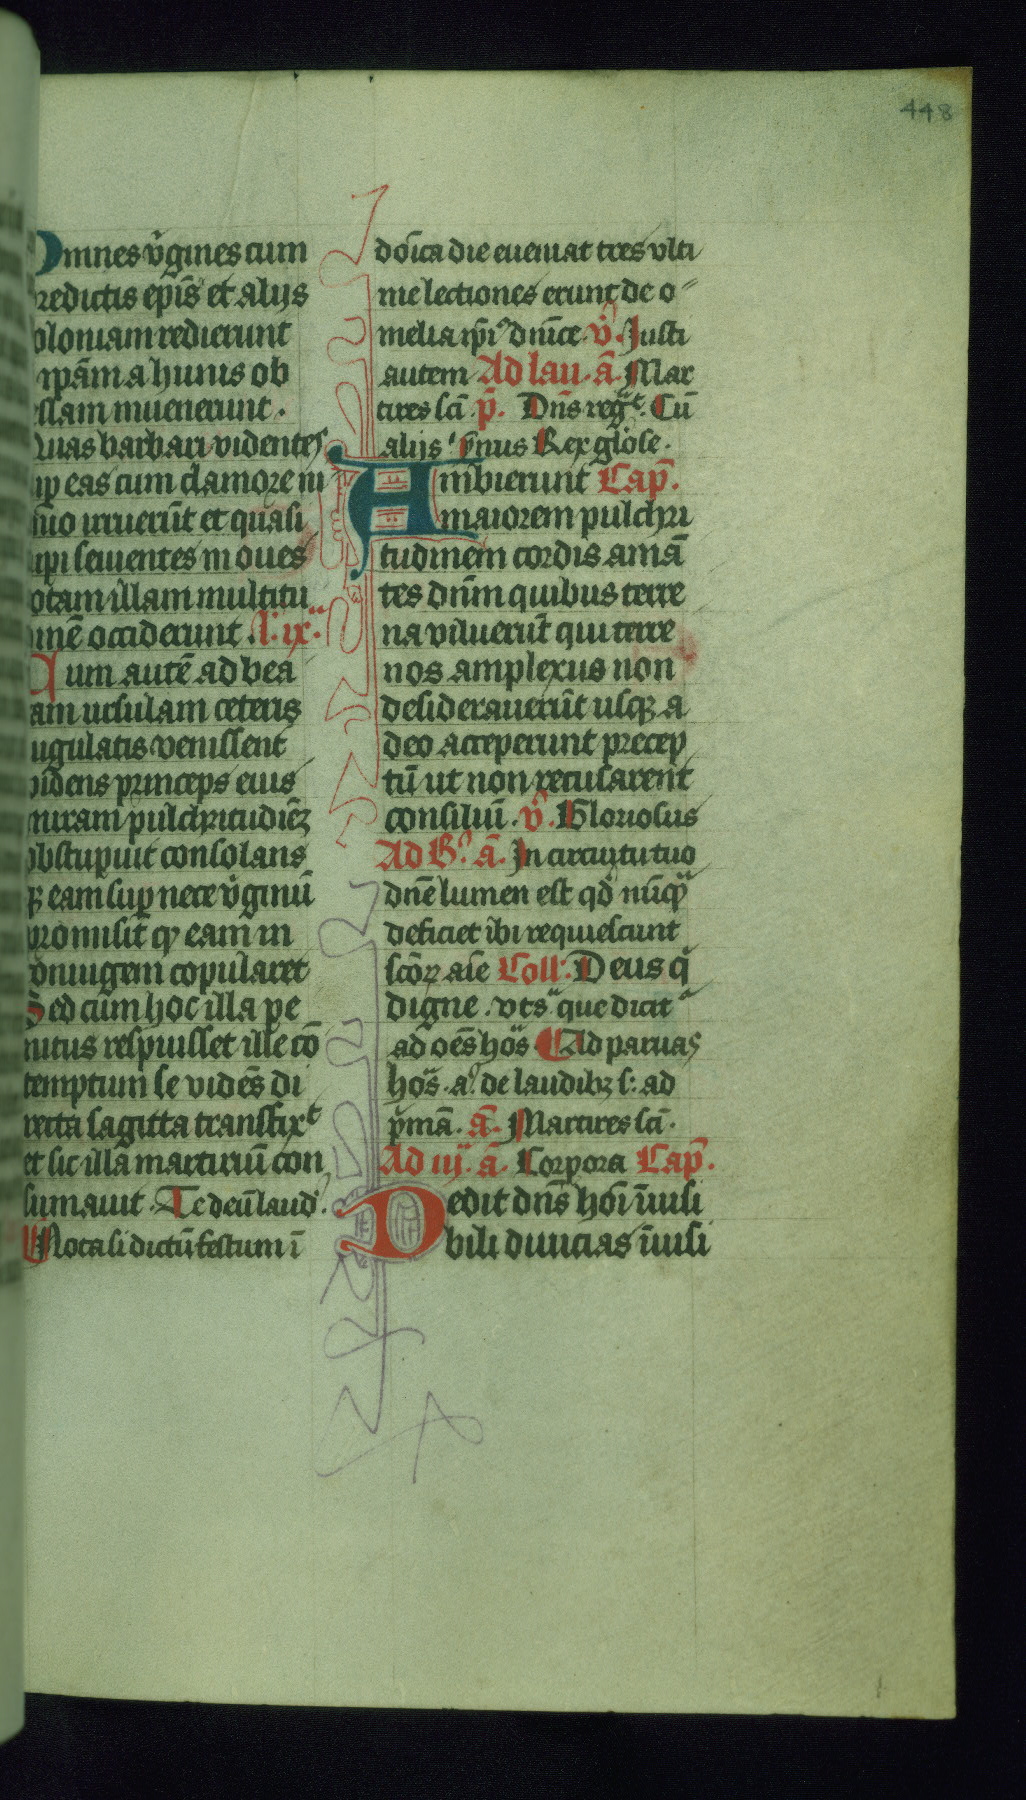 448
Omnes v̾gines cum
redictis ep̄is et alijs
oloniam redierunt
ip̄am a hunis ob
ssam inuenerunt .
Quas barbari videntes
up eas cum clamore ni
mio irruerūt et quasi
upi seuientes in oues
otam illam multitu
inē occiderunt . l': ix.ª
Cum autē ad bea
am ursulam ceteris
iugulatis venissent
videns princeps eius
miram pulchritudiēꝫ
obstupuit consolans
qꝫ eam suꝑ nece v̾ginū
promisit qꝫ eam in
coniugem copularet
Sed cum hoc illa pe
nitus respuisset ille cō
temptum se vidēs di
recta sagitta transfixͭ
et sic illa martiriū con
sumauit . Te deū laud'.
Nota si dictū festum ī
doīca die eueniat tres vlti
me lectiones erunt de o-
melia ip̄i' dnīce . v̾. Justi
autem Ad lau . ā . Mar
tires sc̄i p̄. Dn̄s reg.ͭ Cū
alijs ' p̄nus Rex gl̄ose .
Ambierunt Cap̄.
A maiorem pulchri
tudinem cordis amā
tes dn̄m quibus terre
na viluerūt qui terre
nos amplexus non
desiderauerūt usqꝫ a
deo acceperunt precep
tū ut non recusarent
consiliū . v̾. Gloriosus
Ad B.' ā . In circuytu tuo
dn̄e lumen est qd̄ nūqª
deficiet ibi requiescunt
sc̄oꝝ aīe Coll': Deus q̄
digne . vts.ª que dicit.ª
ad oēs hōs . Ad paruas
hōs . a.' de laudibꝫ s: ad
p̄mā . ā . Martires sc̄i .
Ad iij.ª ā . Corpora Cap̄.
Dedit dn̄s hōi īuisi
bili diuicias īuisi